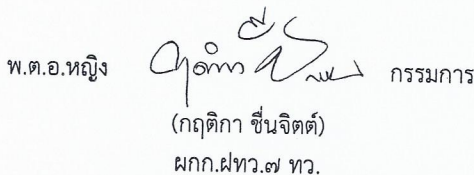 พ.ต.อ.หญิง กรรมการ
(กฤติกา ชื่นจิตต์)
ผกก.ฝทว.๗ ทว.